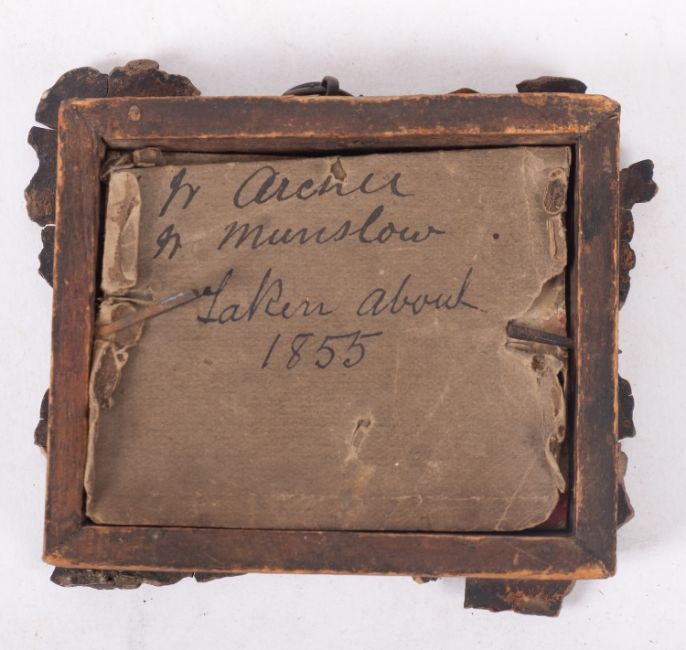 Archer
Munslow.
Taken about
1855